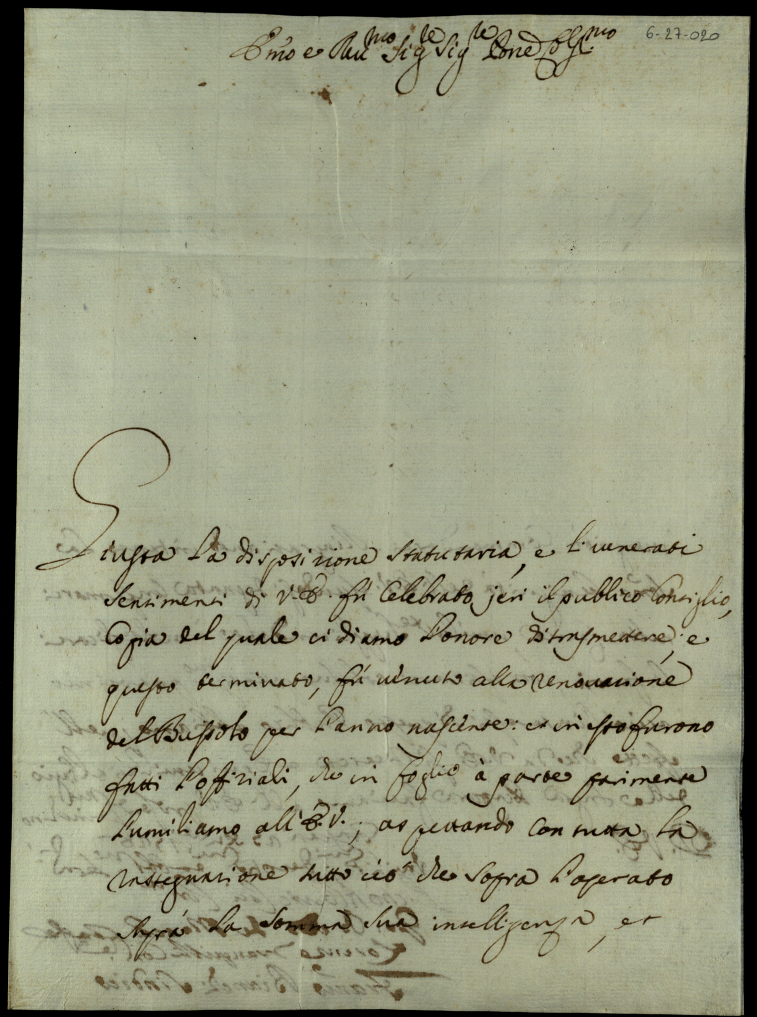 6-27-020
Emo e Rmo Sigre Sigre Pone Colmo
Giusta La disposizione statutaria, e li venerati
Sentimenti di V. E. fù Celebrato jeri il publico Consiglio,
Copia del quale ci diamo l'onore di trasmettere; e
questo terminato, fù venuto alla renovazione
del Bussolo per l'anno nascente: et in esso furono
fatti l'offiziali, che in foglio à parte parimente
l'umiliamo all' E. V.; aspettando con tutta la
rassegnazione tutto ciò che sopra l'operato
la Somma Sua intelligenza, et